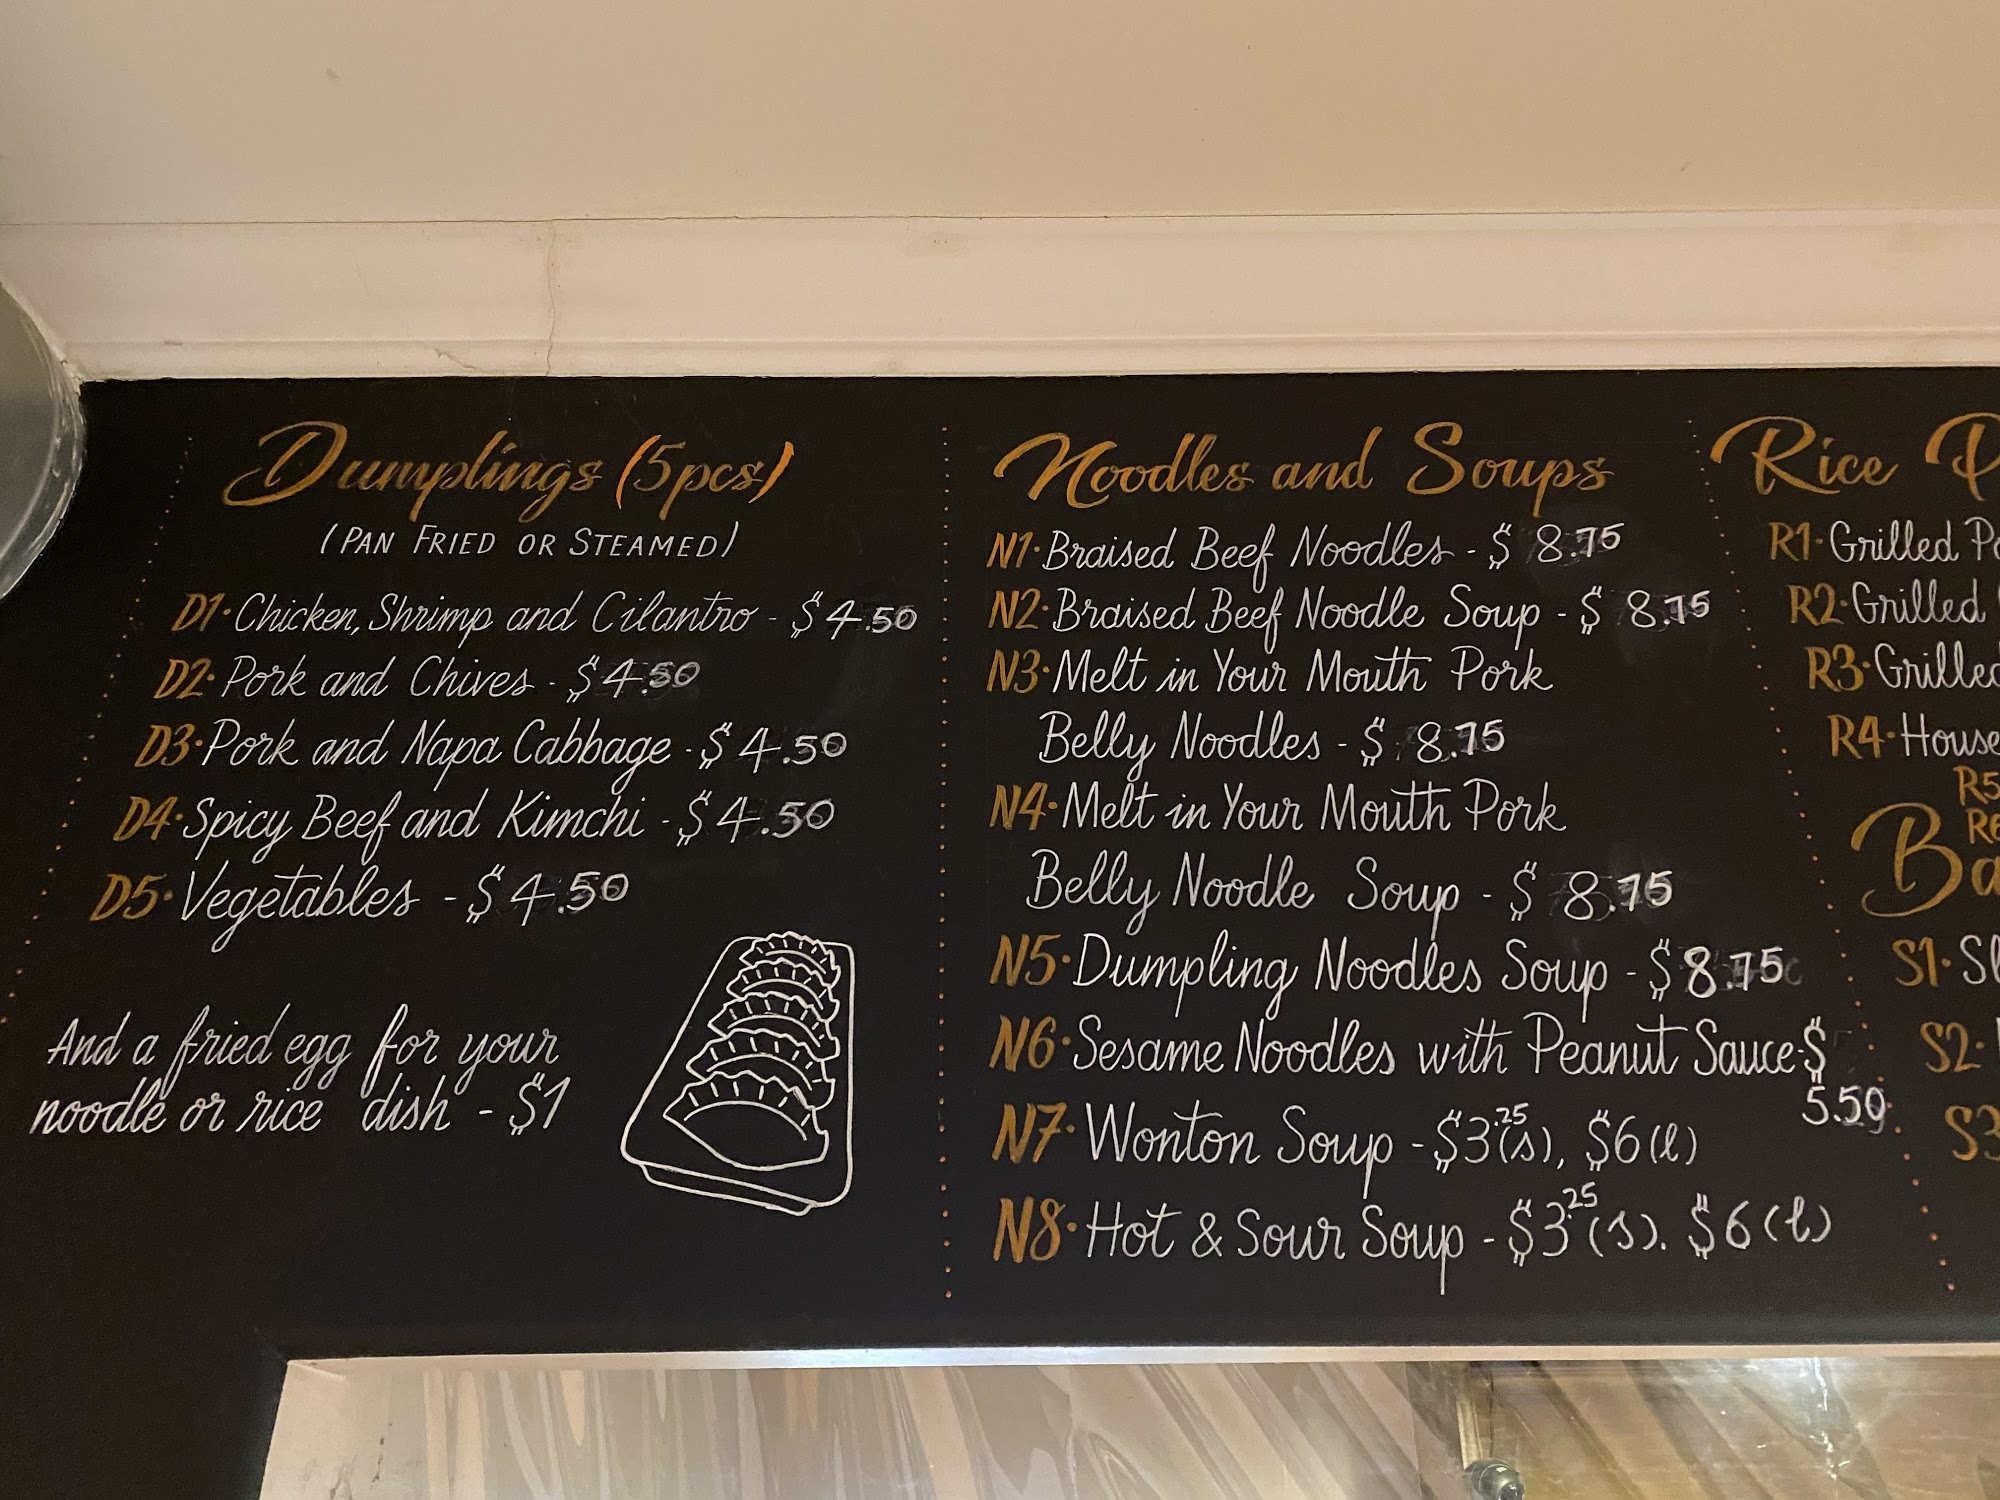 Dumplings (5pcs)
(PAN FRIED OR STEAMED)
D1· Chicken, Shrimp and Cilantro - $4.50
D2· Pork and Chives - $4.50
D3· Pork and Napa Cabbage - $4.50
D4· Spicy Beef and Kimchi - $4.50
D5· Vegetables - $4.50
And a fried egg for your
noodle or rice dish - $1
Noodles and Soups
N1· Braised Beef Noodles - $ 8.75
N2· Braised Beef Noodle Soup - $ 8.75
N3· Melt in Your Mouth Pork
Belly Noodles - $ 8.75
N4· Melt in Your Mouth Pork
Belly Noodle Soup - $ 8.75
N5· Dumpling Noodles Soup - $8.75
N6· Sesame Noodles with Peanut Sauce-$
5.50
N7· Wonton Soup - $3.25(s), $6(l)
N8· Hot & Sour Soup - $3.25(s). $6(l)
Rice
R1· Grilled
R2· Grilled
R3· Grilled
R4· House
R5
R6
Ba
S1·
S2·
S3